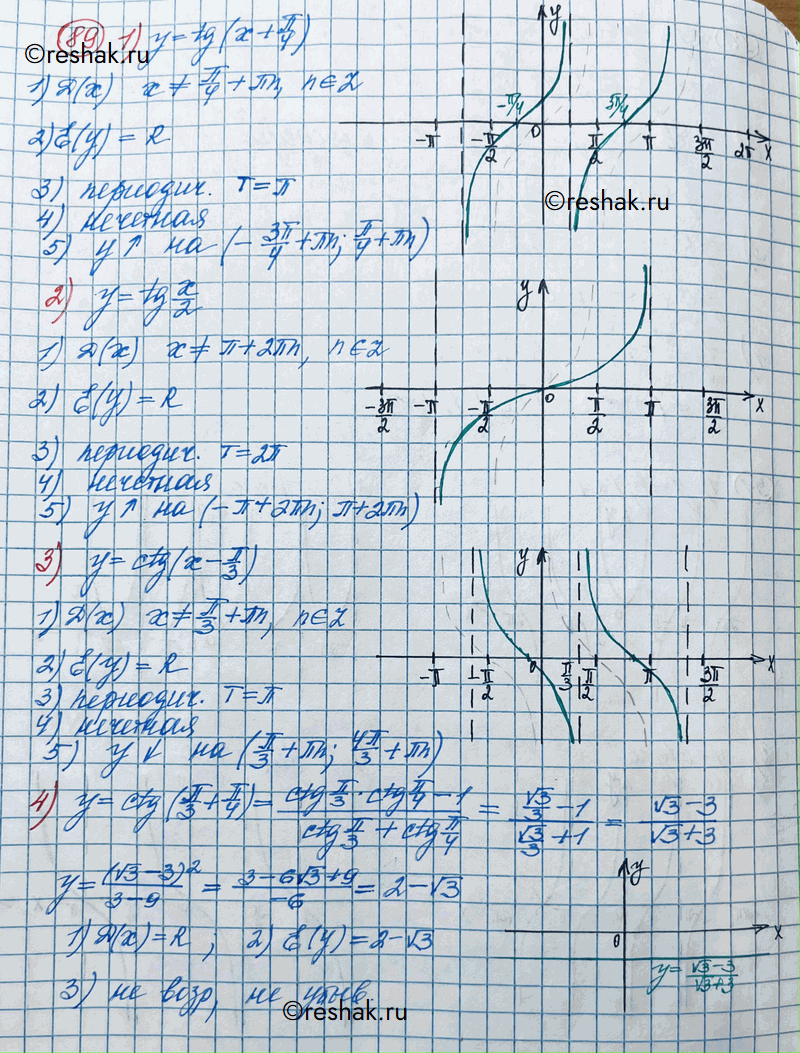 89 1) y = tg (x + π/4)
©reshak.ru
1) D(x) x ≠ π/4 + πn, n∈Z
2) E(y) = R
3) периодич. T = π
4) нечетная
5) y↑ на (- 3π/4 + πn; π/4 + πn)
y
-π/4 3π/4
-π -π/2 0 π/2 π 3π/2 2π x
©reshak.ru
2) y = tg x/2
1) D(x) x ≠ π + 2πn, n∈Z
2) E(y) = R
3) периодич. T = 2π
4) нечетная
5) y↑ на (-π + 2πn; π + 2πn)
y
-3π/2 -π -π/2 0 π/2 π 3π/2 x
3) y = ctg (x - π/3)
1) D(x) x ≠ π/3 + πn, n∈Z
2) E(y) = R
3) периодич. T = π
4) нечетная
5) y↓ на (π/3 + πn; 4π/3 + πn)
y
-π -π/2 0 π/3 π/2 π 3π/2 x
4) y = ctg (π/3 + π/4) = (ctg π/3 · ctg π/4 - 1)/(ctg π/3 + ctg π/4) = (√3/3 - 1)/(√3/3 + 1) = (√3 - 3)/(√3 + 3)
y = (√3 - 3)²/(3 - 9) = (3 - 6√3 + 9)/(-6) = 2 - √3
1) D(x) = R ; 2) E(y) = 2 - √3
3) не возр, не убыв
y
0 x
y = (√3 - 3)/(√3 + 3)
©reshak.ru